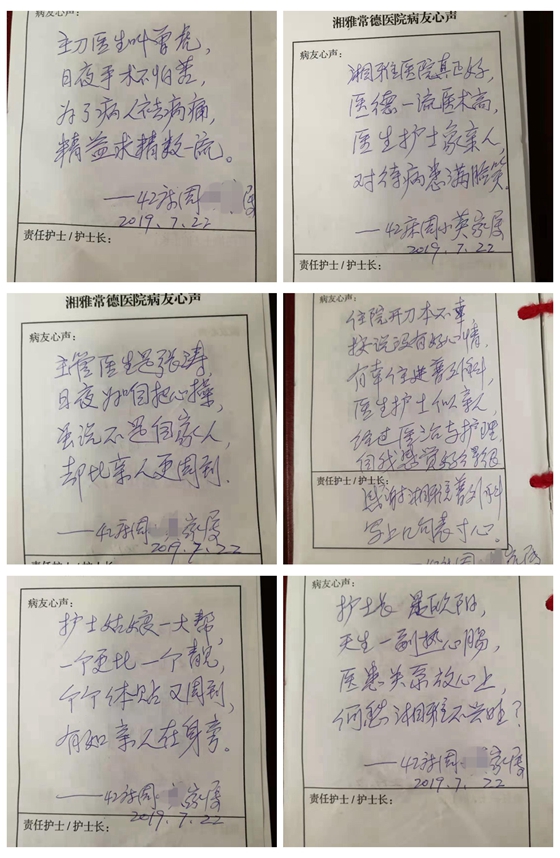 病友心声:
主刀医生叫曾虎,
日夜手术不怕苦,
为了病人祛病痛,
精益求精数一流。
——42床周
2019.7.22
责任护士/护士长:
湘雅常德医院病友心声
病友心声:
湘雅医院真正好,
医德一流医术高,
医生护士家亲人,
对待病患满脸笑。
——42床周小英家属
2019.7.22
责任护士/护士长:
湘雅常德医院病友心声
病友心声:
主管医生是张涛,
日夜为咱把心操,
虽说不是自家人,
却比亲人更周到.
——42床周 家属
2019.7.22
责任护士/护士长:
病友心声:
住院开刀本不幸,
按说没有好心情,
有幸住进普外科,
医生护士似亲人,
经过医治与护理
自我感觉好得很
责任护士/护士长:
感谢湘雅普外科
写上几句表寸心。
——42床周 家属
病友心声:
护士姑娘一大帮,
一个更比一个靓,
个个体贴又周到,
有如亲人在身旁。
——42床周 家属
2019.7.22
责任护士/护士长:
病友心声:
护士长是欧阳,
天生一副热心肠,
医患关系放心上,
何愁湘雅不兴旺?
——42床周 家属
2019.7.22
责任护士/护士长: